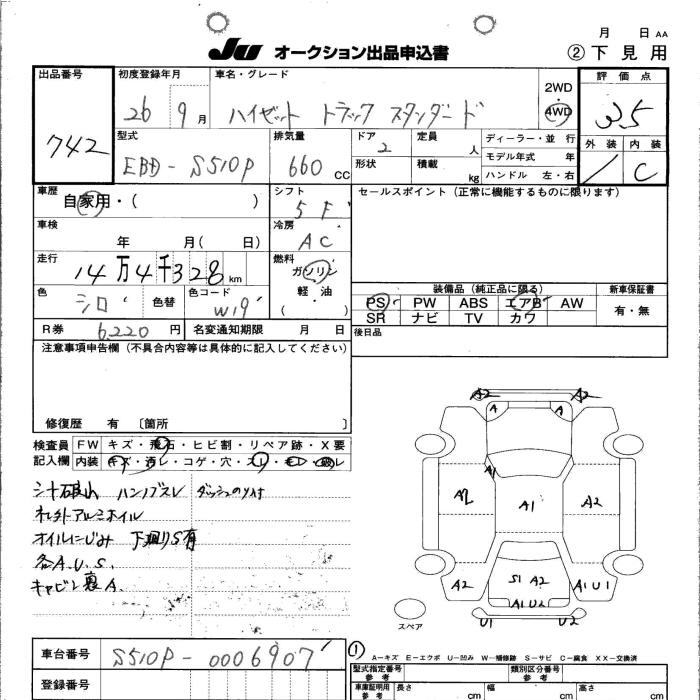 JU オークション出品申込書
月 日 AA
② 下見用
出品番号
742
初度登録年月
26 9 月
車名・グレード
ハイゼット トラック スタンダード
2WD
4WD
評価点
3.5
外装 内装
C
型式
EBD-S510P
排気量
660 CC
ドア
2
形状
定員 人
積載 kg
ディーラー・並行
モデル年式 年
ハンドル 左・右
車歴
自家用・( )
シフト
5F
セールスポイント (正常に機能するものに限ります)
車検
年 月( 日)
冷房
AC
走行
14万4千328 km
燃料
ガソリン
軽・油
( )
色
シロ
色替
色コード
W19
装備品 (純正品に限る)
PS PW ABS エアB AW
SR ナビ TV カワ
新車保証書
有・無
R券
6220 円
名変通知期限 月 日
後日品
注意事項申告欄 (不具合内容等は具体的に記入してください)
修復歴 有 〔箇所 〕
検査員記入欄
FW キズ・飛石・ヒビ割・リペア跡・X要
内装 キズ・汚レ・コゲ・穴・スレ・モレ・破レ
シート破レ ハンドルスレ ダッシュのり付
社外アルミホイル
オイルにじみ 下廻りS有
各A.U.S.
キャビン裏A.
A2 A2
A A
A1
A2 A1 A2
A2 S1 A2 A1 U1
A1 U2
U1 U2
スペア
車台番号
S510P-0006907
登録番号
①
A－キズ E－エクボ U－凹み W－補修跡 S－サビ C－腐食 XX－交換済
型式指定番号 参考
類別区分番号 参考
車庫証明用 参考
長さ cm
幅 cm
高さ cm